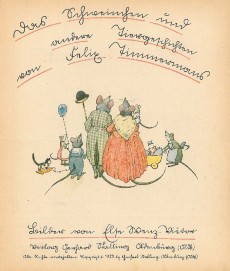 Das Schweinchen und
andere Tiergeschichten
von Felix Timmermans
Bilder von Else Wenz-Viëtor
Verlag Gerhard Stalling Oldenburg
Alle Rechte vorbehalten Copyright by Gerhard Stalling, Oldenburg